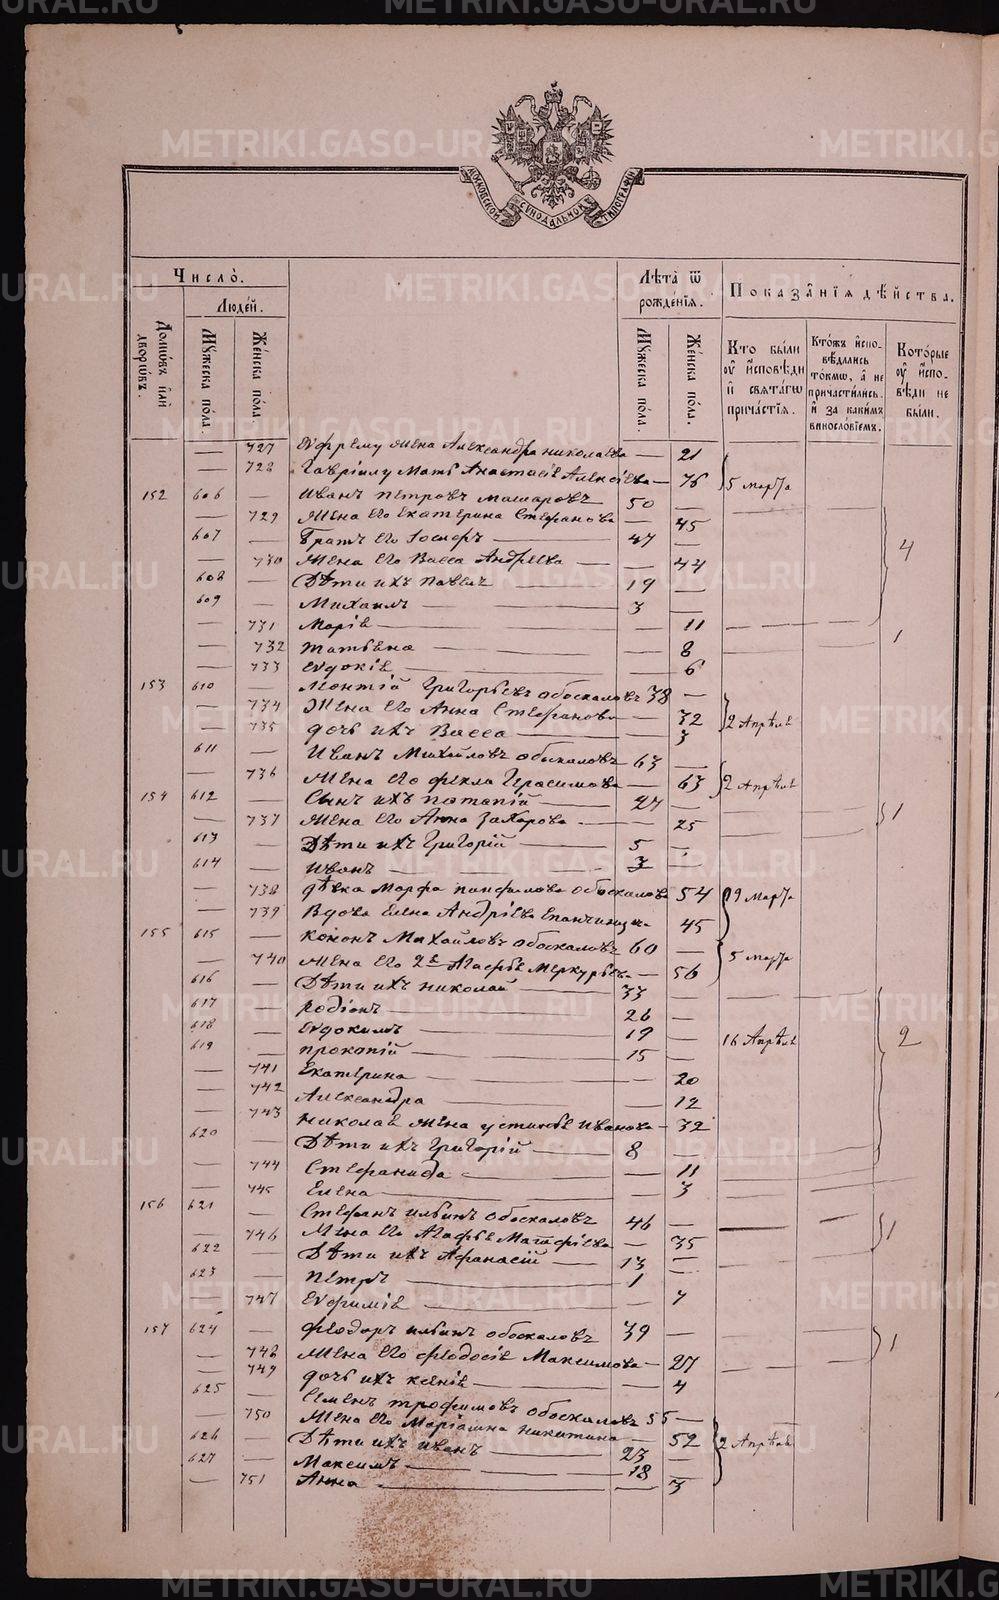 METRIKI.GASO-URAL.RU
МОСКОВСКОЙ СѴНОДАЛЬНОЙ ТИПОГРАФІИ
Число̀.
Людéй.
Домѡ́въ и҆лѝ дворѡ́въ.
Мꙋ́жеска по́ла.
Же́нска по́ла.
Лѣ́та ѿ рожде́нїѧ.
Мꙋ́жеска по́ла.
Же́нска по́ла.
Показа̑нїѧ дѣ́йства.
Кто̀ бы́ли ᲂу҆ и҆́сповѣди и҆ свѧта́гѡ прича́стїѧ.
Кто́жъ и҆спо-вѣ́дались то́кмѡ, а҆ не причасти́лись. и҆ за каки́мъ винослові́емъ.
Кото́рые ᲂу҆ и҆́спо-вѣди не бы́ли.
— 727 Ефрему жена Александра николаева — 21
— 728 Гавріилу Мать Анастасія Алексіева — 76 5 марта
152 606 — Иванъ петровъ 50 —
— 729 Жена его Екатерина Стефанова — 45
607 — Братъ его 47 —
— 730 Жена его Васса Андреева — 44 4
608 — Дѣти ихъ павелъ 19 —
609 — Михаилъ 3 —
— 731 Марія — 11 1
— 732 татьяна — 8
— 733 евдокія — 6
153 610 — Григорьевъ обоскаловъ 38 —
— 734 Жена его Анна Стефанова — 32 2 Апрѣля
— 735 дочь ихъ Васса — 3
611 — Иванъ Михайловъ обоскаловъ 63 —
— 736 Жена его фекла Герасимова — 63 2 Апрѣля
154 612 — Сынъ ихъ потапій 27 — 1
— 737 жена его Анна Захарова — 25
613 — Дѣти ихъ Григорій 5 —
614 — иванъ 3 —
— 738 дѣвка Марфа панфилова обоскалова 54 19 Марта
— 739 Вдова Елена Андріева — 45
155 615 — кононъ Михайловъ обоскаловъ 60 — 5 марта
— 740 жена его 2я Агафья Меркурьева — 56
616 — Дѣти ихъ николай 33 —
617 — родіонъ 26 —
618 — Евдокимъ 19 — 2
619 — прокопій 15 — 16 Апрѣля
— 741 Екатерина — 20
— 742 Александра — 12
— 743 николая жена устинья иванова — 32
620 — Дѣти ихъ Григорій 8 —
— 744 Стефанида — 11
— 745 Елена — 3
156 621 — Стефанъ ильинъ обоскаловъ 46 — 1
— 746 Жена его Агафья — 35
622 — Дѣти ихъ Афанасій 13 —
623 — петръ 1 —
— 747 Евфимія — 7
157 624 — феодоръ ильинъ обоскаловъ 39 — 1
— 748 Жена его феодосія Максимова — 27
— 749 дочь ихъ ксенія — 4
625 — Семенъ трофимовъ обоскаловъ 55 —
— 750 Жена его Маріамна никитина — 52 2 Апрѣля
626 — Дѣти ихъ иванъ 23 —
627 — Максимъ 18 —
— 751 Анна — 3